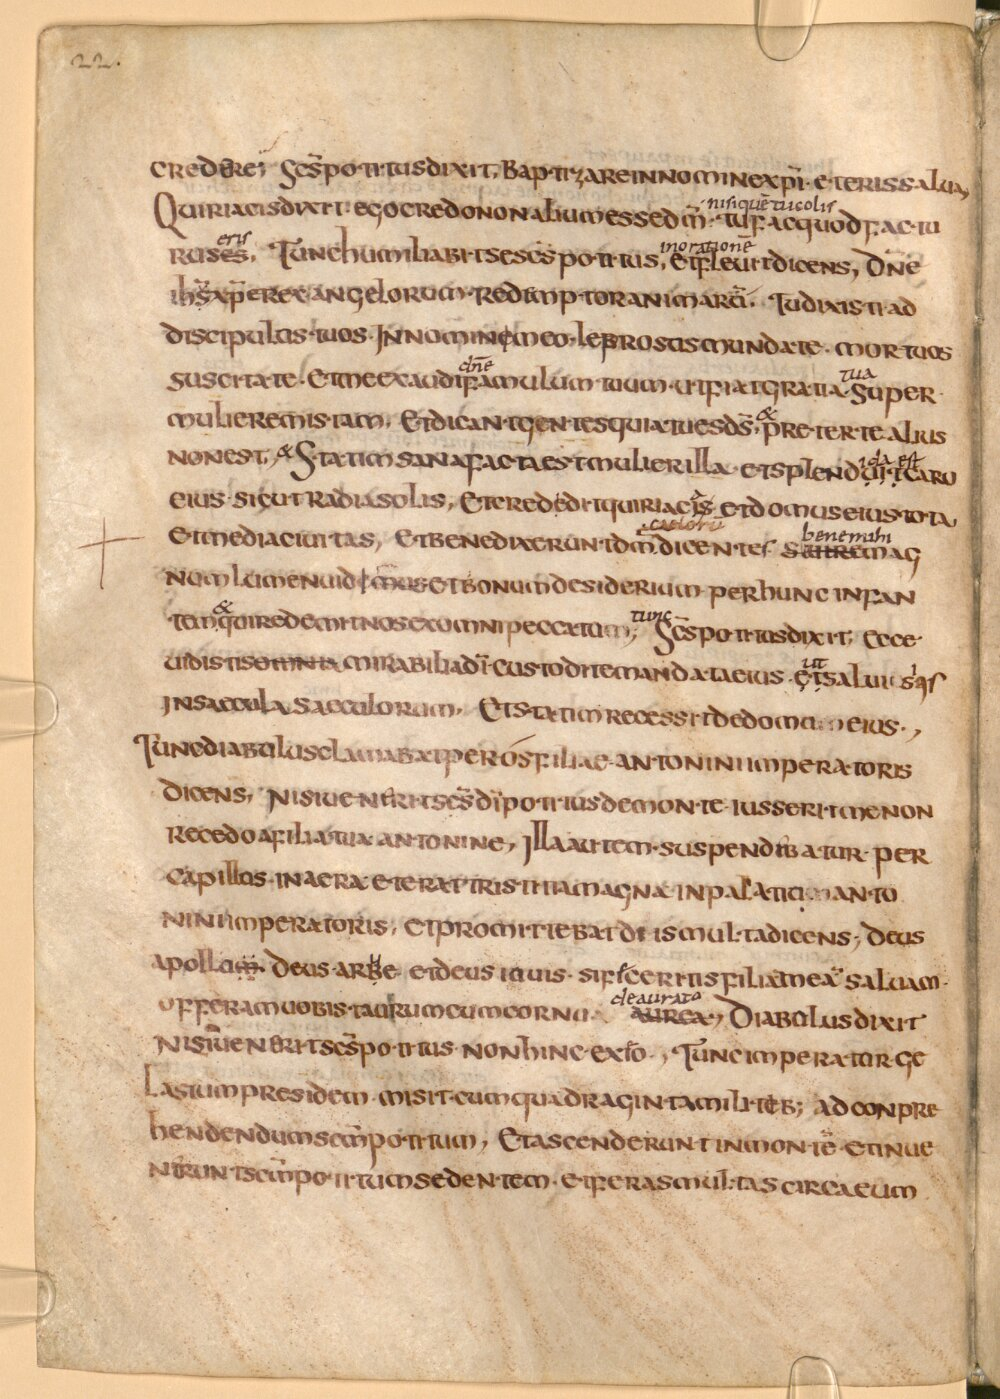 22.
credere; Scs potitus dixit, Baptizare in nomine xpi et eris salua,
nisi quē tu colis
Quiriacis dixit ego credo non alium esse dm̄ tu fac quod factu
eris
rus es. Tunc humiliabit se scs potitus, et fleuit dicens, Dn̄e
in oratione
ihs xp̄e rex angelorum redimptor animarū. Tu dixisti ad
discipulos tuos In nomine meo leprosus mundate mortuos
dn̄e
tua
suscitate. Et me exaudi famulum tuum ut fiat gratia super
mulierem istam. Et dicant gentes quia tu es ds, & preter te alius
non est, & Statim sana facta est mulier illa et splenduit caro
ida est
eius sicut radia solis, Et crededit quiriacis et domus eius tota
caelorū
benemihi
Et media ciuitas, Et benedixerunt dm̄ dicentes mag
num lumen uidimus et bonum desiderium per hunc infan
tem & qui redemit nos ex omni peccatum; tunc Scs potitus dixit, Ecce
ut
uidistis omnia mirabilia dī custodite mandata eius et salui sitis
In saecula saeculorum. Et statim recessit de domum eius.,
Tunc diabulus clamabat per ós filiae antonini imperatoris
dicens, Nisi uenerit scs dī potitus de monte iusserit me non
recedo a filia tua antonine, Illa autem suspendebatur per
capillos in aera et erat tristitia magna in palatium anto
nini imperatoris, Et promittebat diis multa dicens, Deus
apollo Deus arbe et deus iouis si feceritis filiā meā saluam
deaurato
offeram uobis taurum cum cornu aurea., Diabulus dixit
Nisi uenerit scs potitus non hinc exeo., Tunc imperator ge
lasium presidem misit cum quadraginta militib; ad conpre
hendendum scm̄ potitum, Et ascenderunt in monte et inue
nerunt scm̄ potitum sedentem et feras multas circa eum